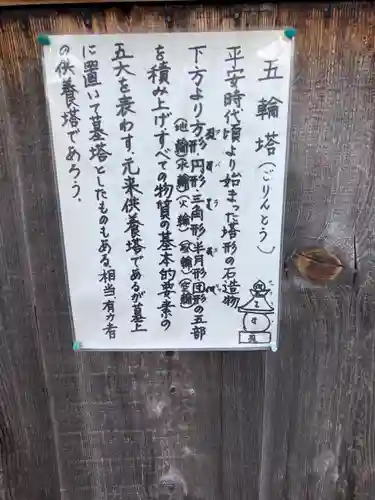 五輪塔(ごりんとう)
平安時代頃より始まった塔形の石造物
下方より方形、円形、三角形、半月形、団形の五部
(地輪)(水輪)(火輪)(風輪)(空輪)
を積み上げすべての物質の基本的要素の
五大を表わす。元来供養塔であるが墓上
に置いて墓塔としたものもある。相当有力者
の供養塔であろう。